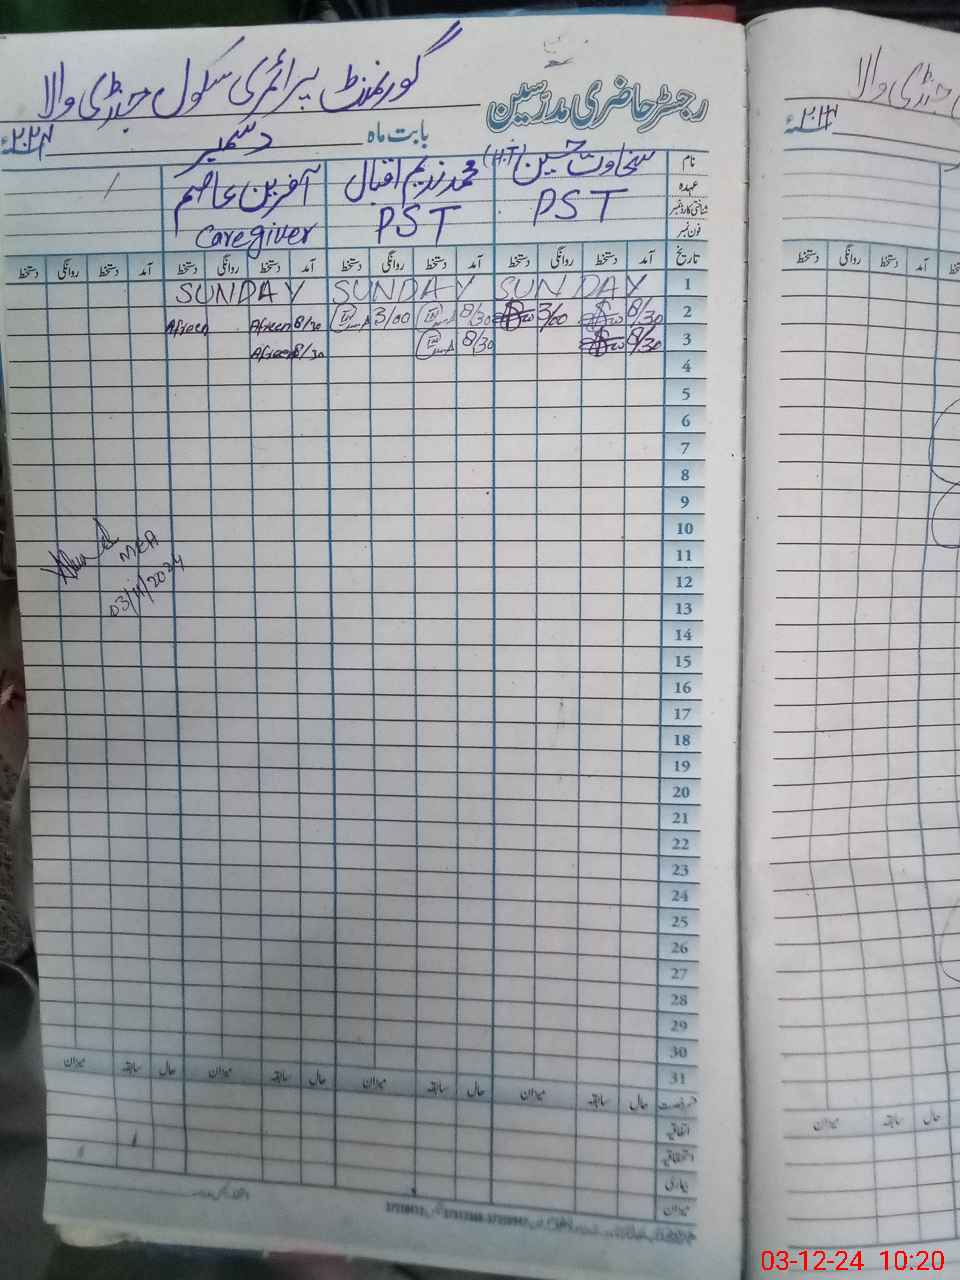 گورنمنٹ پرائمری سکول جنڈی والا
رجسٹر حاضری مدرسین
بابت ماہ دسمبر ۲۰۲۴ء
نام سخاوت حسین (H.T) محمد ندیم اقبال آفرین عاصم
عہدہ PST PST Caregiver
شناختی کارڈ نمبر
فون نمبر
تاریخ آمد دستخط روانگی دستخط آمد دستخط روانگی دستخط آمد دستخط روانگی دستخط آمد دستخط روانگی دستخط
1 SUNDAY SUNDAY SUNDAY
2 8/30 3/00 8/30 3/00 8/30 Afreen Afreen
3 8/30 8/30 8/30 Afreen
4
5
6
7
8
9
10
11
12
13
14
15
16
17
18
19
20
21
22
23
24
25
26
27
28
29
30
31
MEA
03/11/2024
حال سابقہ میزان حال سابقہ میزان حال سابقہ میزان حال سابقہ میزان
اتفاقیہ
استحقاقیہ
بیماری
میزان
جنڈی والا
۲۰۲۴ء
آمد دستخط روانگی دستخط
حال سابقہ میزان
03-12-24 10:20